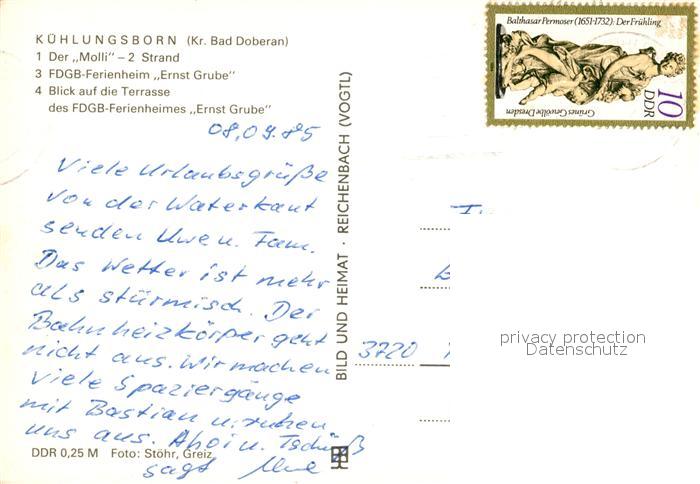 KÜHLUNGSBORN (Kr. Bad Doberan)
1 Der „Molli" – 2 Strand
3 FDGB-Ferienheim „Ernst Grube"
4 Blick auf die Terrasse
des FDGB-Ferienheimes „Ernst Grube"
08.09.85
Viele Urlaubsgrüße
von der Waterkant
senden Uwe u. Fam.
Das Wetter ist mehr
als stürmisch. Der
Bahnheizkörper geht
nicht aus. Wir machen
viele Spaziergänge
mit Bastian u. ruhen
uns aus. Ahoi u. Tschüß
sagt Uwe
DDR 0,25 M Foto: Stöhr, Greiz
BILD UND HEIMAT · REICHENBACH (VOGTL)
Balthasar Permoser (1651-1732): Der Frühling
10
DDR
Grünes Gewölbe Dresden
3720
privacy protection
Datenschutz